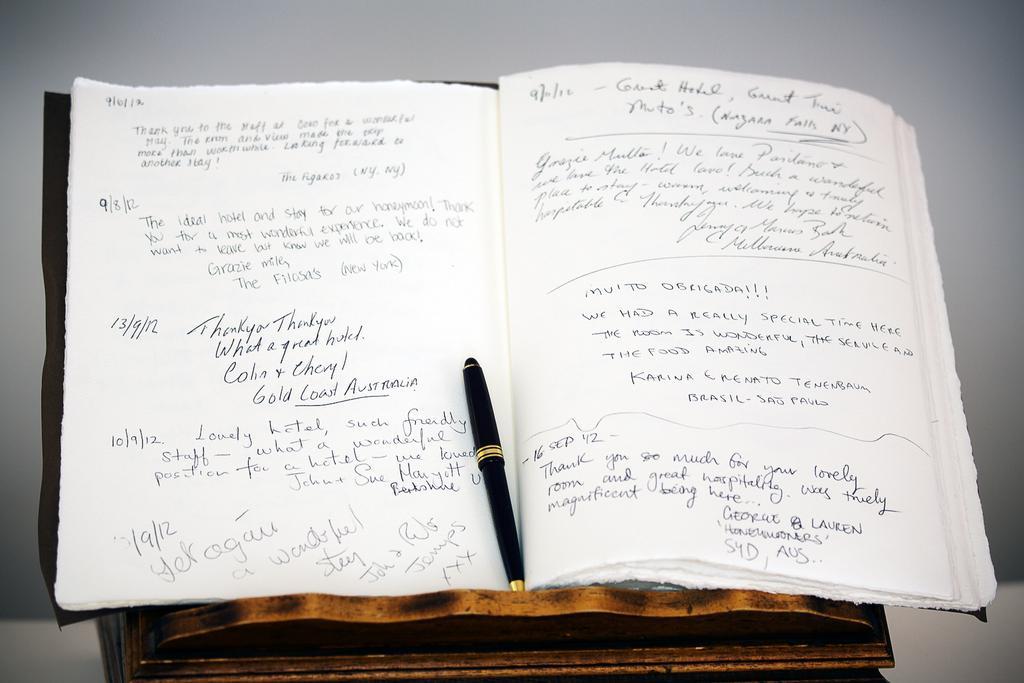 9/6/12
Thank you to the staff at Covo for a wonderful
stay. The room and view made the trip
more than worthwhile. Looking forward to
another stay!
The Figaros (NY, NY)
9/8/12
The ideal hotel and stay for our honeymoon! Thank
you for a most wonderful experience. We do not
want to leave but know we will be back!
Grazie mille,
The Filosa's (New York)
13/9/12 Thankyou Thankyou
What a great hotel.
Colin + Cheryl
Gold Coast AUSTRALIA
10/9/12. Lovely hotel, such friendly
staff - what a wonderful
position for a hotel - we loved
John + Sue
Berkshire U
/9/12
Yet again
a wonderful
stay
John &
xxx
- Great Hotel, Great
(NIAGARA FALLS NY)
Grazie Multo! We love Positano &
we love the Hotel Covo! Such a wonderful
place to stay - warm, welcoming & truly
hospitable. Thankyou. We hope to return
Jenny & Marcus
Melbourne Australia.
MUITO OBRIGADA!!!
WE HAD A REALLY SPECIAL TIME HERE
THE ROOM IS WONDERFUL, THE SERVICE AND
THE FOOD AMAZING
KARINA E RENATO TENENBAUM
BRASIL - SAO PAULO
- 16 SEP '12 -
Thank you so much for your lovely
room and great hospitality. Was truely
magnificent being here...
GEORGE & LAUREN
'HONEYMOONERS'
SYD, AUS..